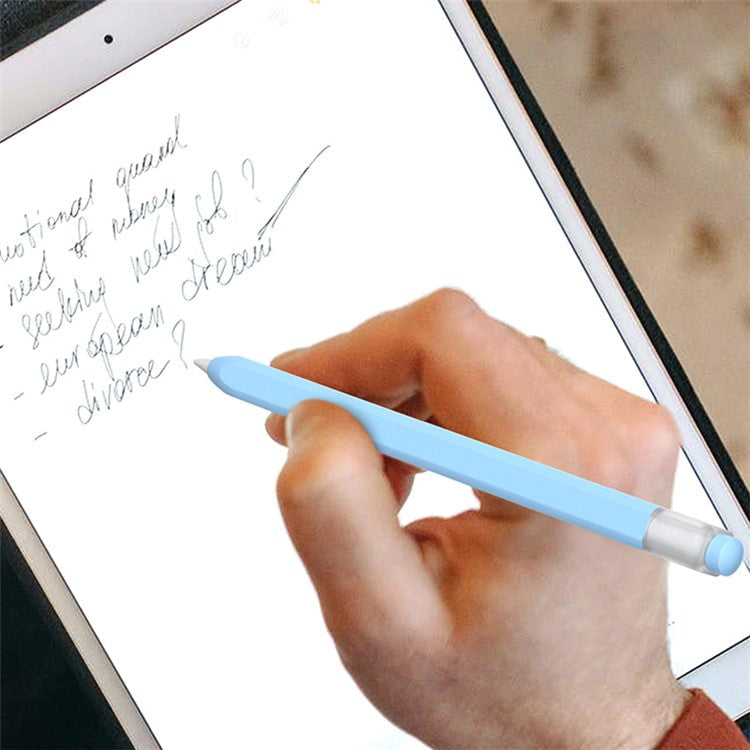 motional quaral
need of money
- seeking new job?
- european dream
- divorce?